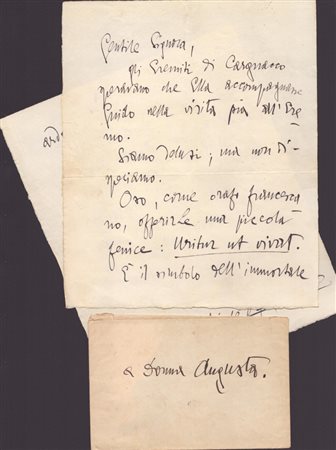 Gentile Signora,
gli Eremiti di Cargnacco
speravano che Ella accompagnasse
Guido nella visita pia all'Ere-
mo.
Siamo delusi, ma non di-
speriamo.
Oso, come orafo francesca-
no, offerirle una piccola
fenice: Uritur ut vivat.
È il simbolo dell'immortale
a Donna Augusta.